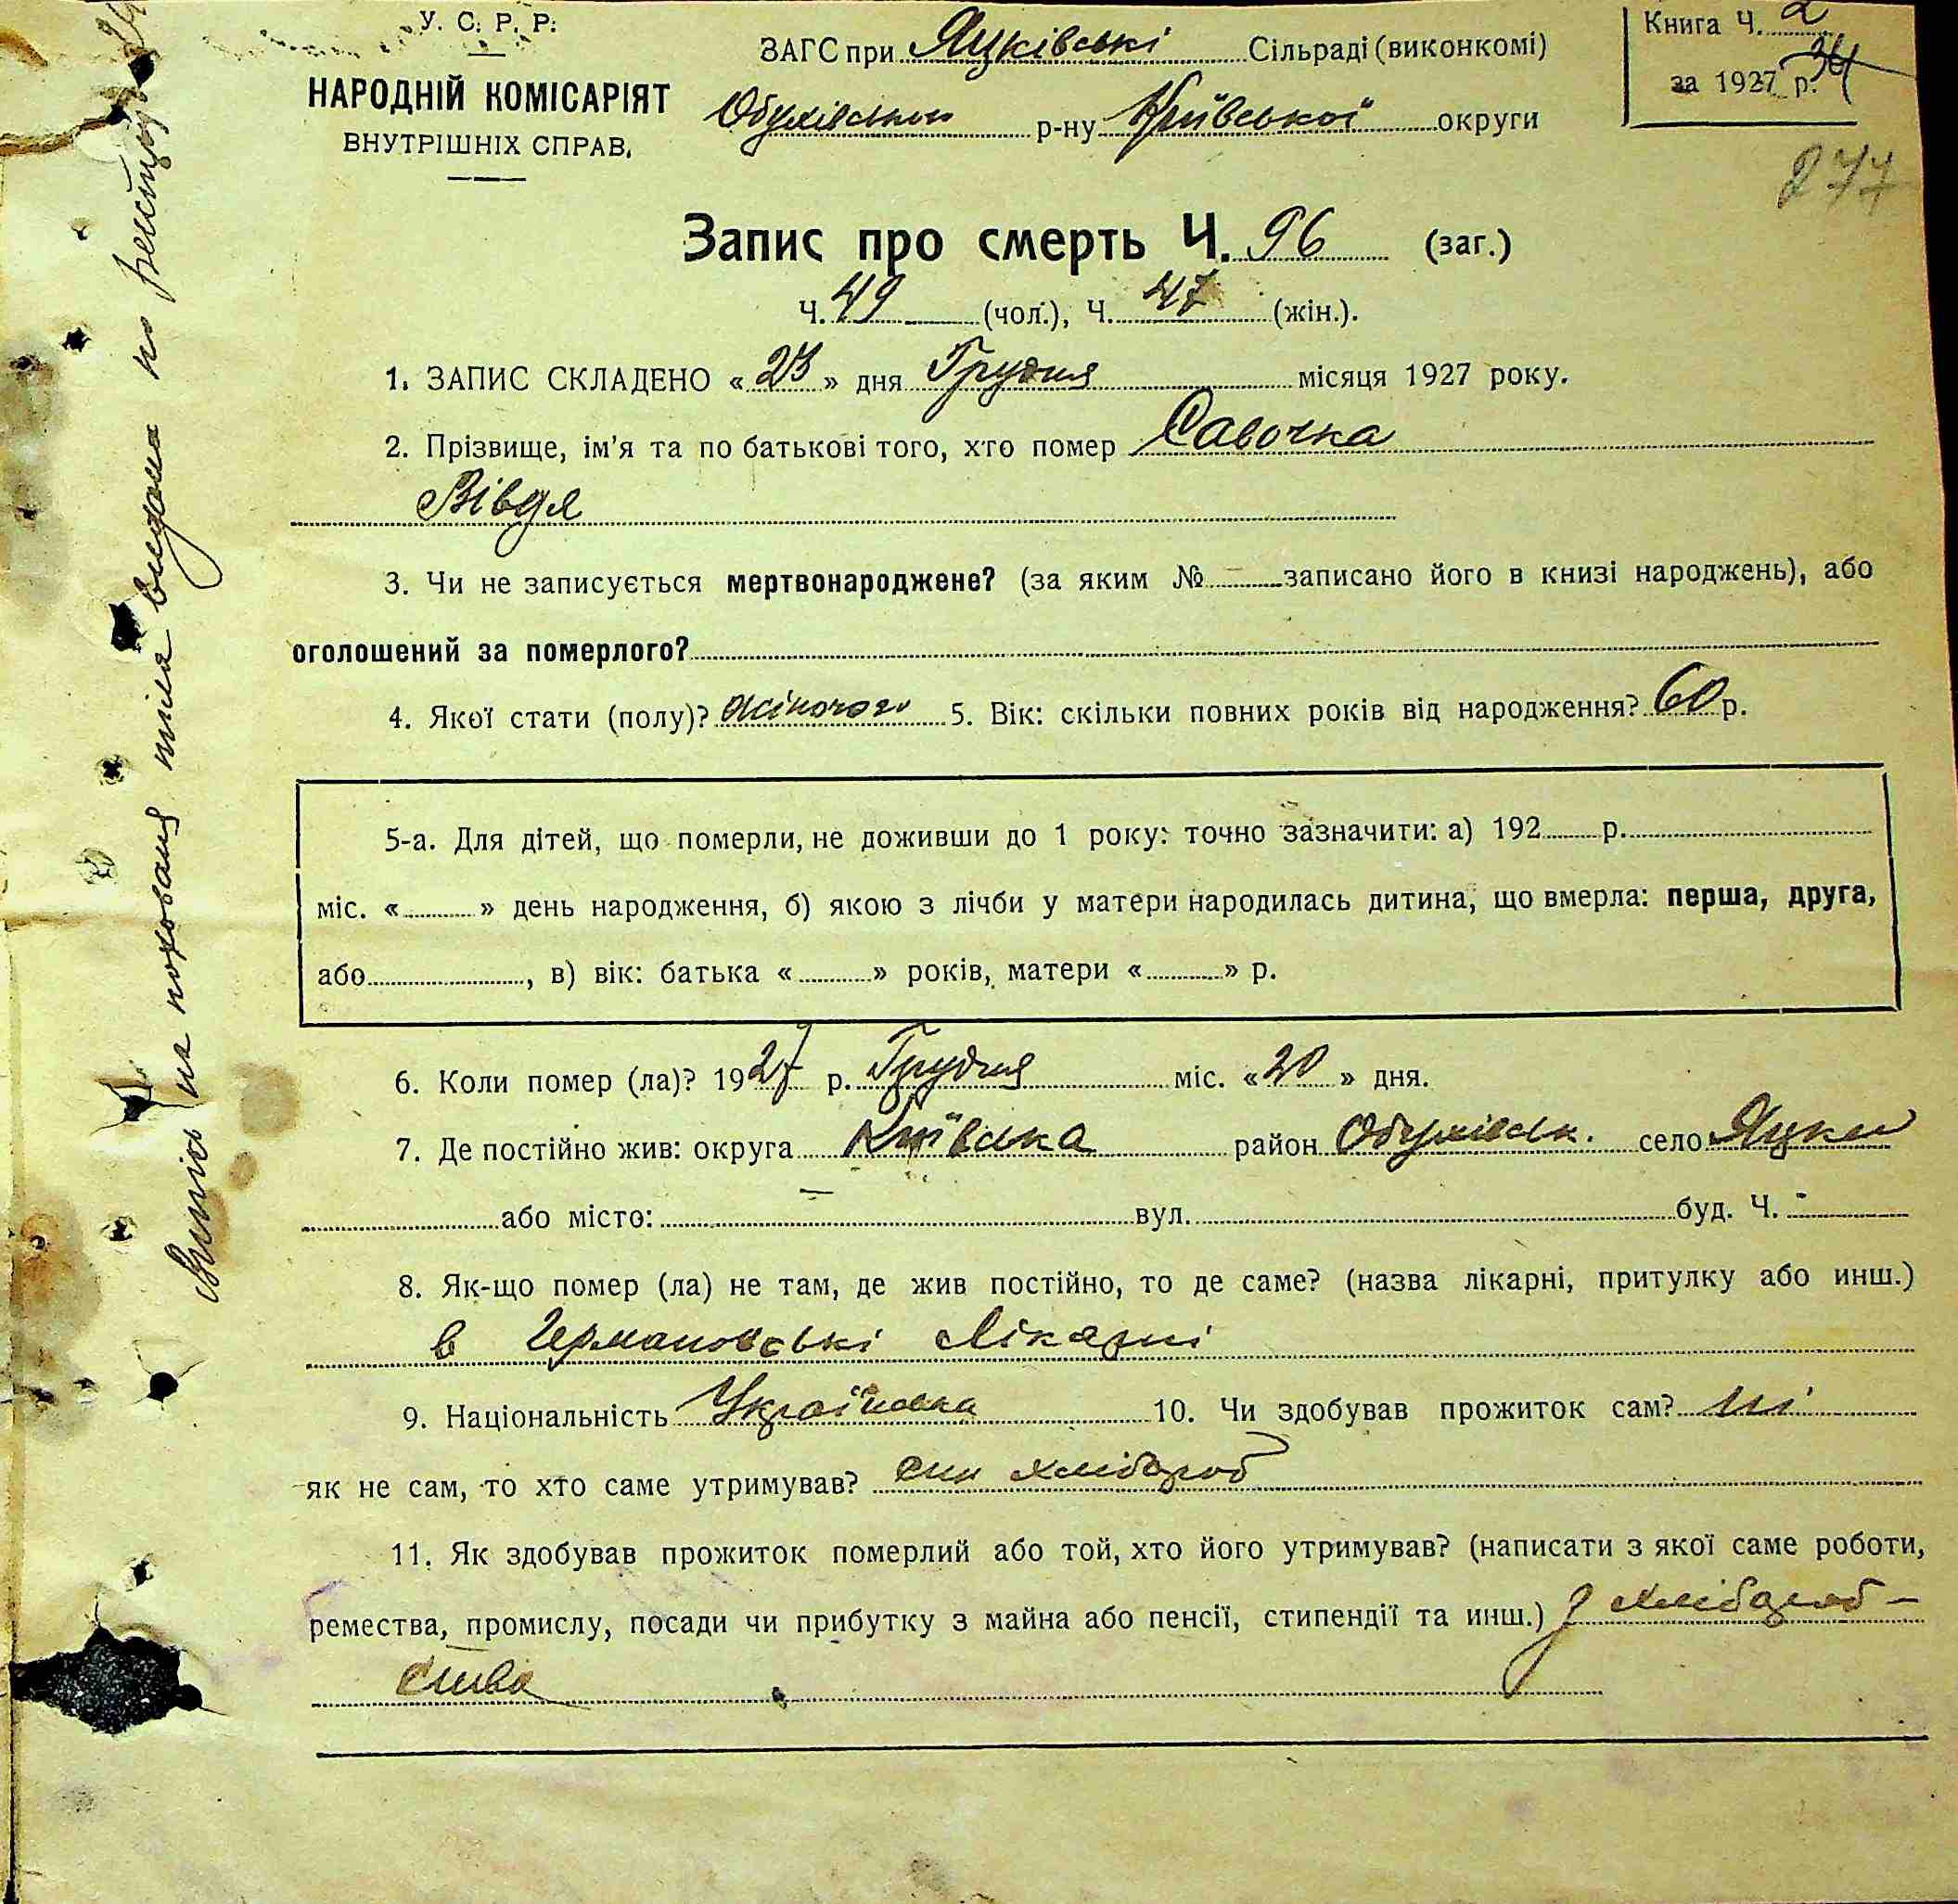 У. С. Р. Р.
НАРОДНІЙ КОМІСАРІЯТ
ВНУТРІШНІХ СПРАВ.
ЗАГС при Яцківські Сільраді (виконкомі)
Обухівського р-ну Київської округи
Книга Ч. 2
за 1927 р.
277
Запис про смерть Ч. 96 (заг.)
Ч. 49 (чол.), Ч. 47 (жін.).
1. ЗАПИС СКЛАДЕНО « 23 » дня Грудня місяця 1927 року.
2. Прізвище, ім'я та по батькові того, хто помер Савочка
Вівдя
3. Чи не записується мертвонароджене? (за яким № записано його в книзі народжень), або
оголошений за померлого?
4. Якої стати (полу)? жіночого 5. Вік: скільки повних років від народження? 60 р.
5-а. Для дітей, що померли, не доживши до 1 року: точно зазначити: а) 192 р.
міс. « » день народження, б) якою з лічби у матери народилась дитина, що вмерла: перша, друга,
або , в) вік: батька « » років, матери « » р.
6. Коли помер (ла)? 1927 р. Грудня міс. « 20 » дня.
7. Де постійно жив: округа Київська район Обухівськ. село Яцки
або місто: вул. буд. Ч. -
8. Як-що помер (ла) не там, де жив постійно, то де саме? (назва лікарні, притулку або инш.)
в Германовські Лікарні
9. Національність Українка 10. Чи здобував прожиток сам? ні
як не сам, то хто саме утримував? син хлібороб
11. Як здобував прожиток померлий або той, хто його утримував? (написати з якої саме роботи,
ремества, промислу, посади чи прибутку з майна або пенсії, стипендії та инш.) З хлібороб-
ства
Випись на поховання тіла видана